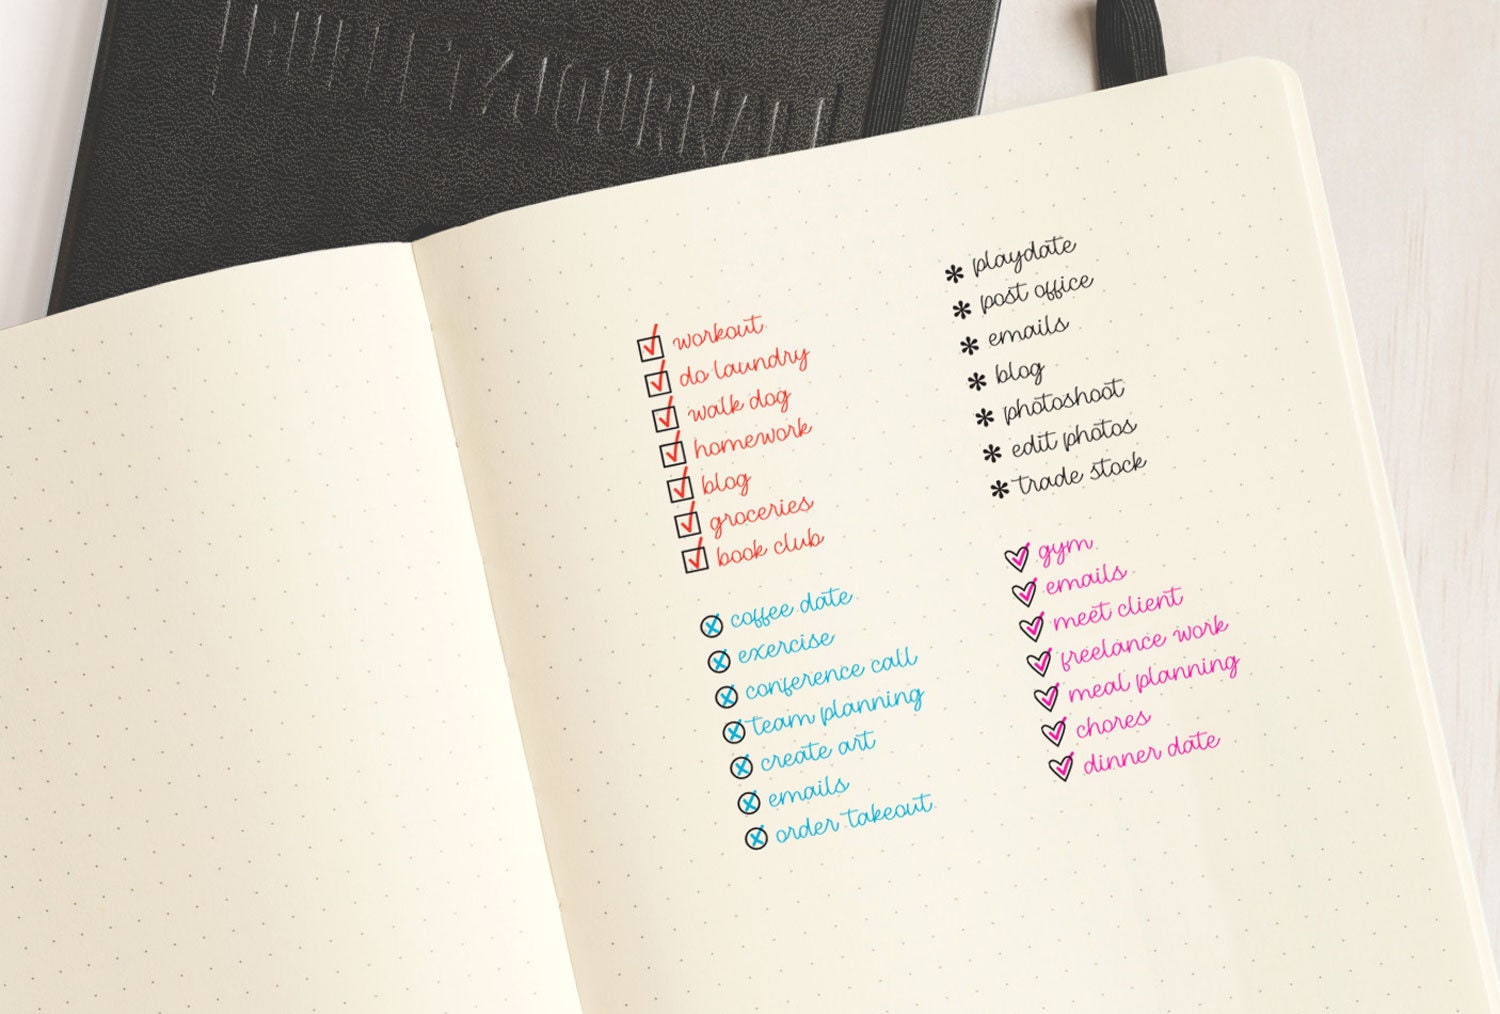 BULLET JOURNAL
workout
do laundry
walk dog
homework
blog
groceries
book club
coffee date
exercise
conference call
team planning
create art
emails
order takeout
* playdate
* post office
* emails
* blog
* photoshoot
* edit photos
* trade stock
gym
emails
meet client
freelance work
meal planning
chores
dinner date